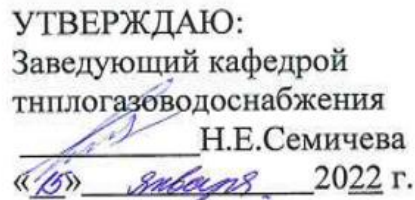 УТВЕРЖДАЮ:
Заведующий кафедрой
тнплогазоводоснабжения
Н.Е.Семичева
«15» января 2022 г.